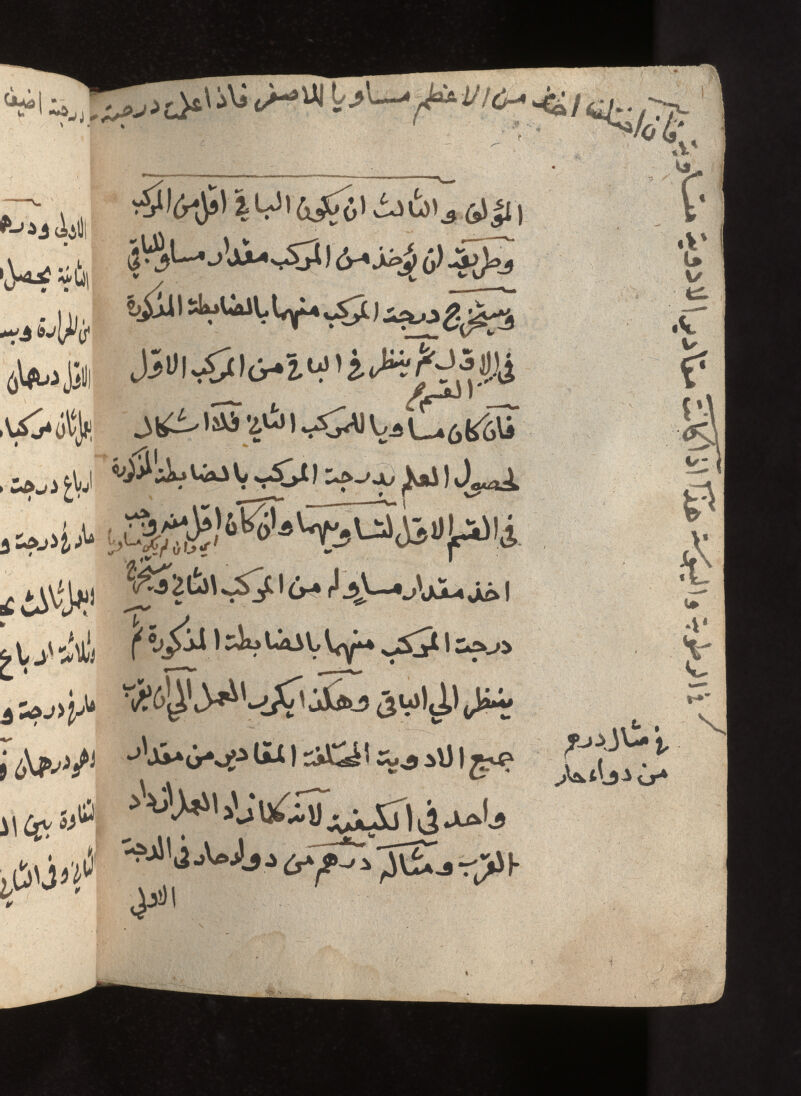 في الرطوبة واليبوسة هذا اذا كانت مقادير الادوية متساوية
فان اختلف اخذ من الاعظم مساويا للاصغر فاذا علمت درجته
درجة اضيف
المؤلف والثالث ان يكون الباقي اقل من المركب
وطريقه ان يؤخذ من المركب مقدار مساو للباقي
ويستخرج درجة المركب منهما بالضابطة المذكورة
في الاول ثم ينظر في الباقي من المركب الاول
القسم
فان كان مساويا للمركب الثاني فلا اشكال
لحصول العلم بدرجة المركب بالضابطة المذكورة
في القسم الاول لتساويهما وان كان اقل منه وجب
اي وان لم يكن مساويا
اخذ مقدار مساو له من المركب الثاني ويستخرج
درجة المركب منهما بالضابطة المذكورة ثم
ينظر الي الباقي وهكذا يكرر العمل الي ان يقرب
جميع الادوية المختلفة المقادير من مقدار
واحد في الكيفية لانه كلما زاد العمل ازداد
القرب ومثاله درهم من دواء حار في الدرجة
الاولي
في مثال درهم
من دواء حار
الاولي ودرهم
الثانية يحصل
من الحرارة
الاول درهمان
بعمل ثان مركبا
ارباع درجة
حار في درجة و
وبعمل ثالث
وثلاثة ارباع
حار في درجة و
وهو درهمان
التفاوة بين
الثاني وفي الثاني